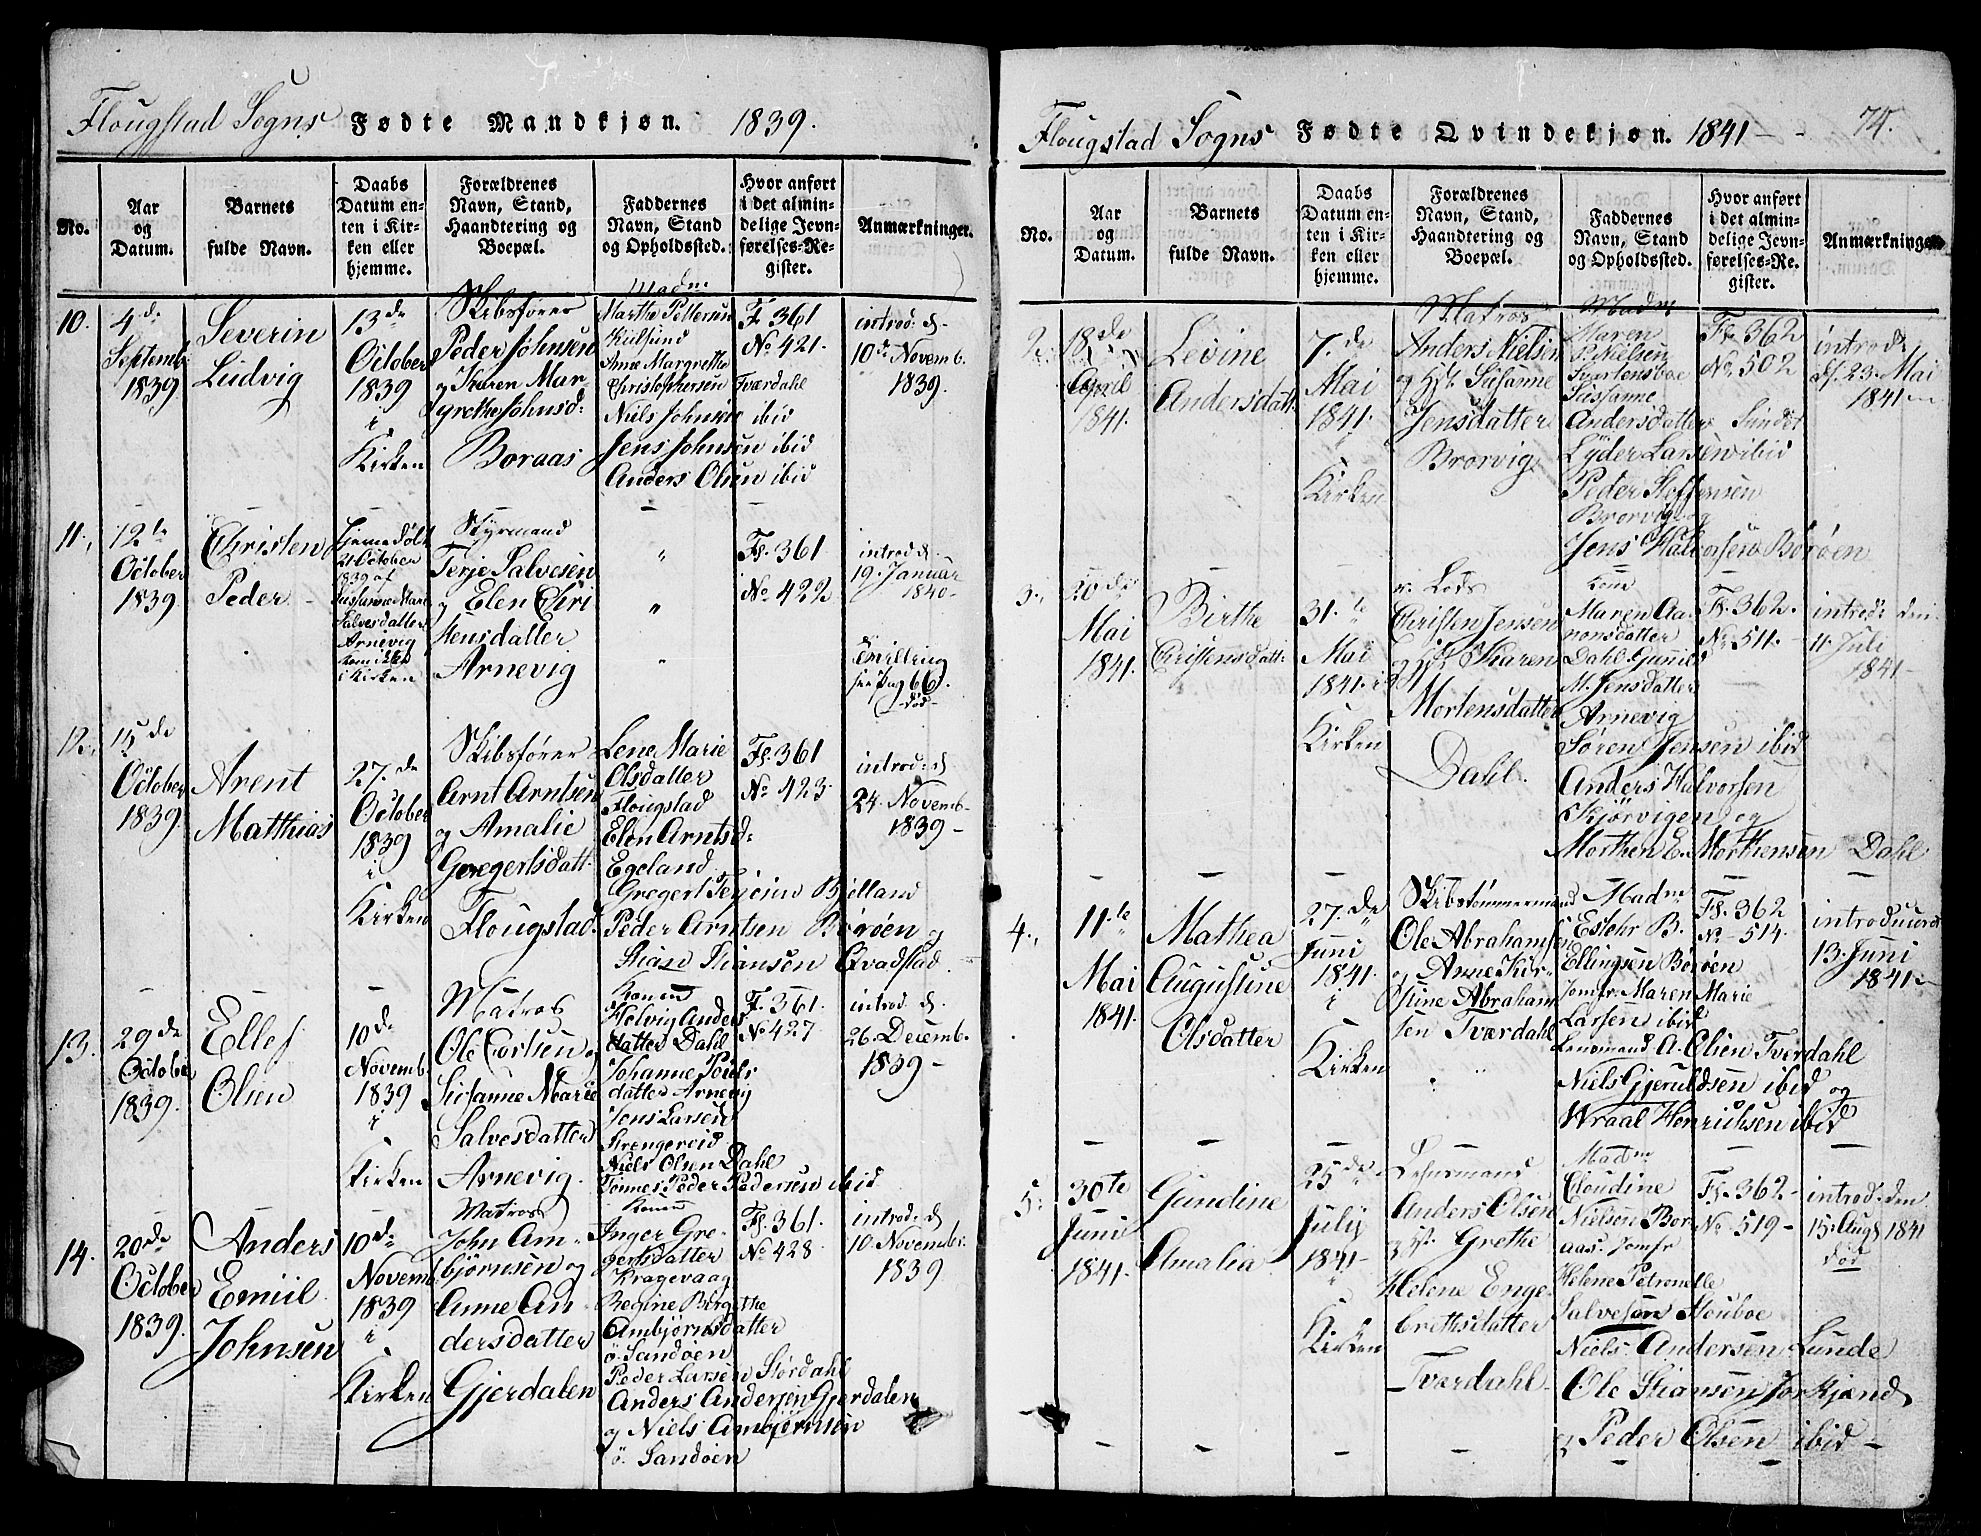 Flougstad Sogns Fødte Mandkjøn. 1839.
No.
Aar
og
Datum.
Barnets
fulde Navn.
Daabs
Datum en-
ten i Kir-
ken eller
hjemme.
Forældrenes
Navn, Stand,
Haandtering og
Boepæl.
Faddernes
Navn, Stand
og Opholdssted.
Hvor anført
i det almin-
delige Jevn-
førelses-Re-
gister.
Anmærkninger.
10.
4de
Septemb
1839
Severin
Ludvig
13de
October
1839
i
Kirken
Skibsfører
Peder Johnsen
og Karen Mar-
grethe Johnsd:
Boraas
Madm
Marthe Pettersen
Anne Margrethe
Christophersen Tværdahl
Niels Johnsen ibid
Jens Johnsen ibid
Anders Olsen ibid
Fl. 361
No 421.
introd: d.
10de Novemb.
1839.
11.
12te
October
1839
Christen
Peder
Hjemmedøbt
21 October
1839 af
Salvesdatter
Arnevig
i Kirken
Styrmand
Terje Salvesen
og Elen Chri
Jensdatter
Arnevig
Fl. 361
No 422
introd d.
19. Januar
1840
Tvilling
see Pag 66.
død
12.
15de
October
1839.
Arent
Matthias
27.de
October
1839
i
Kirken
Skibsfører
Arnt Arntsen
og Amalie
Gregertsdatt.
Flougstad
Lene Marie
Olsdatter
Flougstad
Elen Arntsd:
Egeland
Gregert Terjesen Bjelland
Peder Arntsen Børøen og
Stian Stiansen Qvadstad
Fl. 361
No 423.
introd: d.
24. Novemb-
1839
13.
29de
October
1839.
Ellef
Olsen
10de
Novemb.
1839
i
Kirken
Matros
Ole Corlsen og
Susanne Marie
Salvesdatter
Arnevig.
Konen
Helvig Anders
datter Dahl
Johanne Pouls
datter Arnevig
Jens Larsen
Krengervid
Niels Olsen Dahl
Tønnes Peder Pedersen ibid
Fl. 361.
No 427
introd. d.
26. Decemb.
1839
14.
20de
October
1839.
Anders
Emiil
Johnsen
10de
Novemb.
1839
i
Kirken
Matros
John Am-
bjørnsen og
Anne An
dersdatter
Gjerdalen
Konen
Inger Gre-
gertsdatter
Kragevaag
Regine Birgithe
Ambjørnsdatter
ö. Sandøen
Peder Larsen Stördahl
Anders Andersen Gjerdalen
og Niels Ambjørnsen
ö. Sandøen
Fl. 361.
No 428.
introd: d
10. November
1839
Flougstad Sogns Fødte Qvindekjøn. 1841
74.
No.
Aar
og
Datum.
Barnets
fulde Navn.
Daabs
Datum en-
ten i Kir-
ken eller
hjemme.
Forældrenes
Navn, Stand,
Haandtering og
Boepæl.
Faddernes
Navn, Stand
og Opholdssted.
Hvor anført
i det almin-
delige Jevn-
førelses-Re-
gister.
Anmærkninger
2.
18de
April
1841.
Levine
Andersdatt:
7.de
Mai
1841.
Kirken
Matros
Anders Nielsen
og Hst. Susanne
Jensdatter
Brorvig
Madm
Maren
Nielsen
Sussanne
Andersdatter Sundet
Lyder Larsen ibid
Peder Steffensen
Brorvig og
Jens Halvorsen Børøen
Fl. 362
No 502
introd:
d. 23. Mai
1841
3.
20de
Mai
1841.
Birthe
Christensdatt:
31.te
Mai
1841. i
Kirken
Lods
Christen Jensen
og Hst. Karen
Mortensdatter
Dahl.
Kone
Maren Aa-
nonsdatter
Dahl Gunild
M. Jensdatter
Arnevig
Søren Jensen ibid
Anders Halvorsen
Skjørvigen og
Morthen E. Morthensen Dahl
Fl. 362.
No 511.
introd: den
11. Juli
1841
4.
11te
Mai
1841.
Mathea
Augustine
Olsdatter
27.de
Juni
1841.
i
Kirken
Skibstømmermand
Ole Abrahamsen
og Anne Kir-
stine Abraham
sen Tværdahl
Madm
Estehr B.
Ellingsen Børøen
Jomfr. Maren Marie
Larsen ibid
Lensmand A. Olsen Tverdahl
Niels Gjeruldsen ibid og
Wraal Henrichsen ibid
Fl. 362
No 514.
introduceret
13. Juni
1841
5.
30te
Juni
1841.
Gundine
Amalia
25de
July
1841
i
Kirken
Lensmand
Anders Olsen
og Hst. Grethe
Helene Enge-
brethsdatter
Tværdahl
Madm
Claudine
Nielsen Bor
aas. Jomfr
Helene Petronelle
Salvesen Stouboe
Niels Andersen Lunde
Ole Stiansen Torkjend
og Peder Olsen ibid
Fl. 362
No 519
introd: den
15. Augs 1841
død